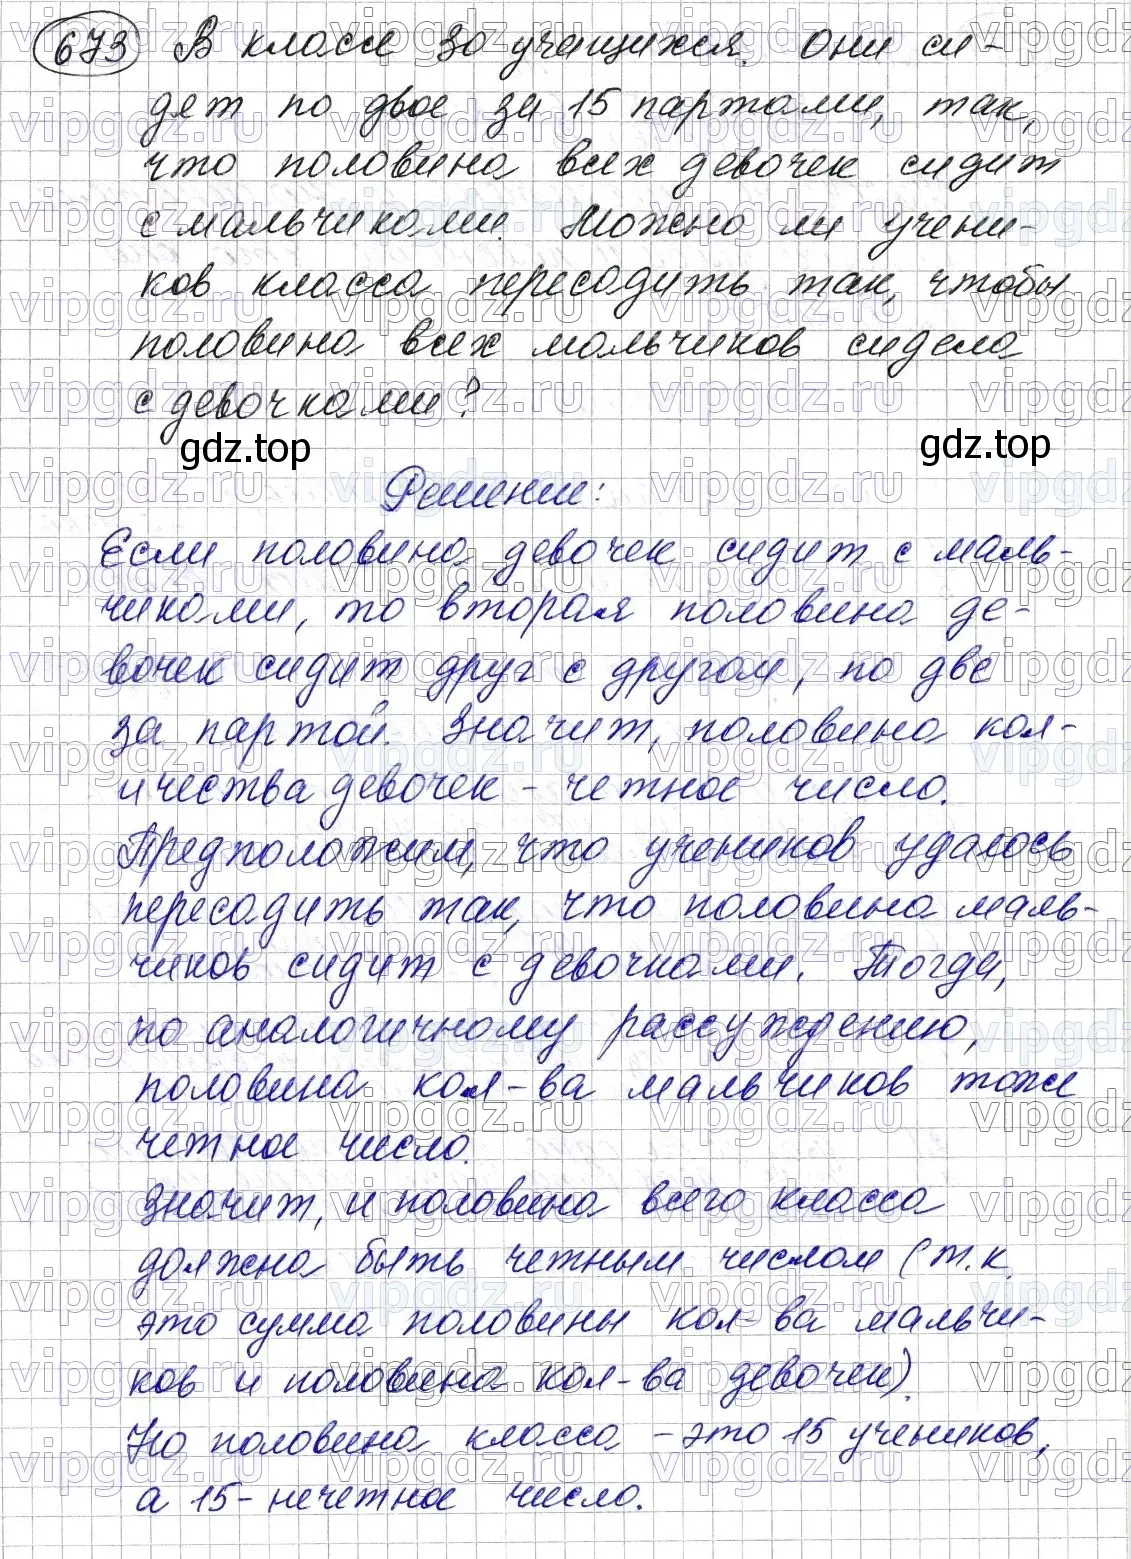 673 В классе 30 учащихся. Они си-
дят по двое за 15 партами, так,
что половина всех девочек сидит
с мальчиками. Можно ли учени-
ков класса пересадить так, чтобы
половина всех мальчиков сидела
с девочками?
gdz.top gdz.top
Решение:
Если половина девочек сидит с маль-
чиками, то вторая половина де-
вочек сидит друг с другом, по две
за партой. Значит, половина кол-
ичества девочек - четное число.
Предположим, что учеников удалось
пересадить так, что половина маль-
чиков сидит с девочками. Тогда,
по аналогичному рассуждению,
половина кол-ва мальчиков тоже
четное число.
Значит, и половина всего класса
должна быть четным числом (т.к.
это сумма половины кол-ва мальчи-
ков и половина кол-ва девочек).
Но половина класса - это 15 учеников,
а 15 - нечетное число.